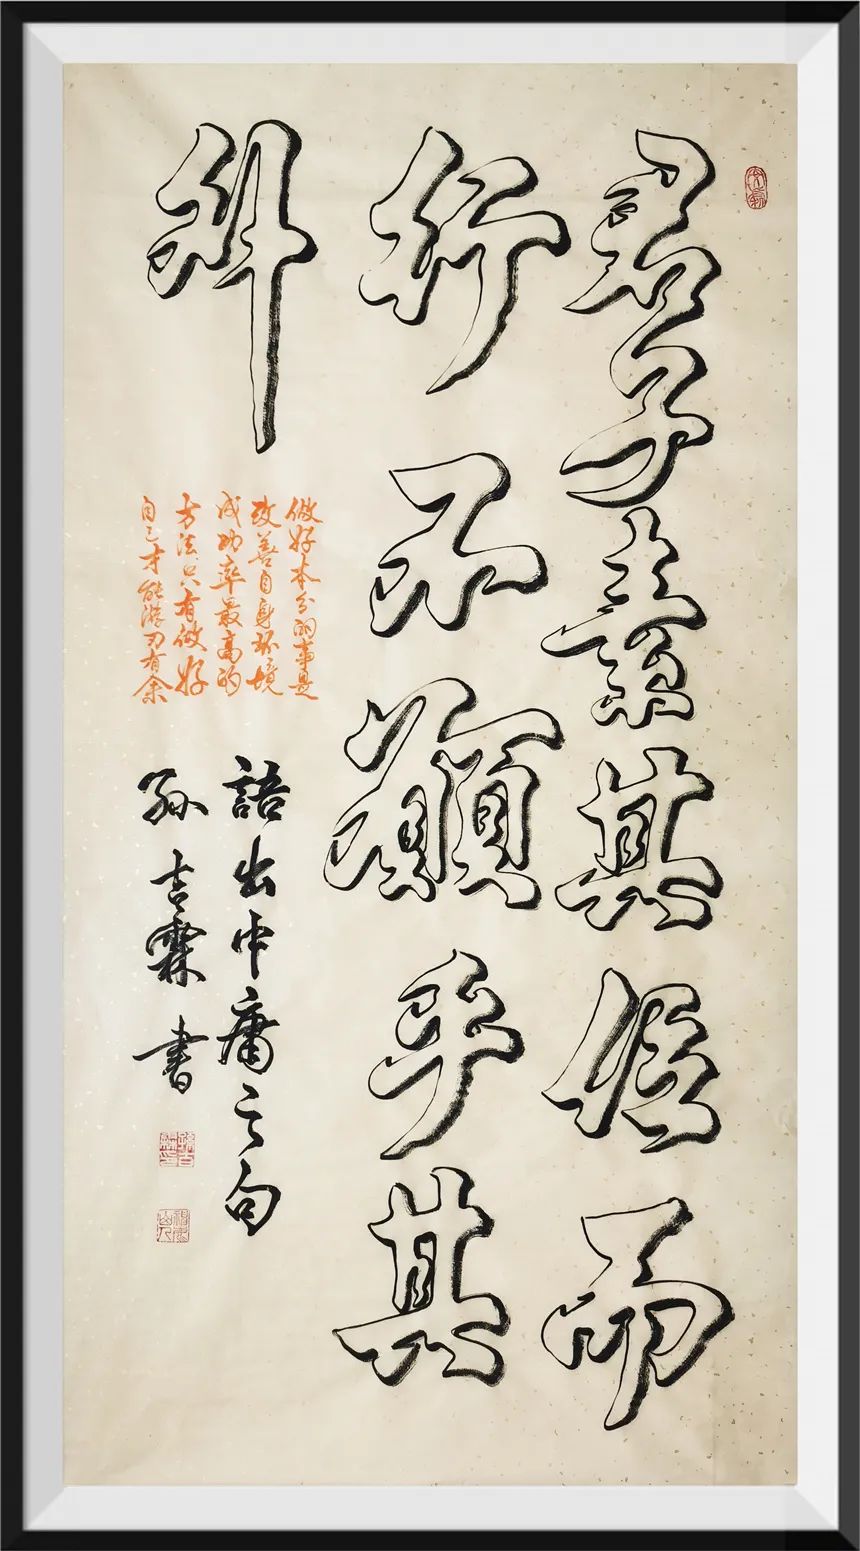 君子素其位而
行不願乎其
外
做好本分的事是
改善自身环境
成功率最高的
方法只有做好
自己才能游刃有余
語出中庸之句
孫吉霖書